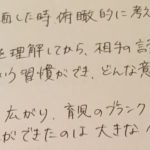 面した時俯瞰的に考え
を理解してから、相手の話
いう習慣ができ、どんな意
広がり、育児のブランク
ができたのは大きな